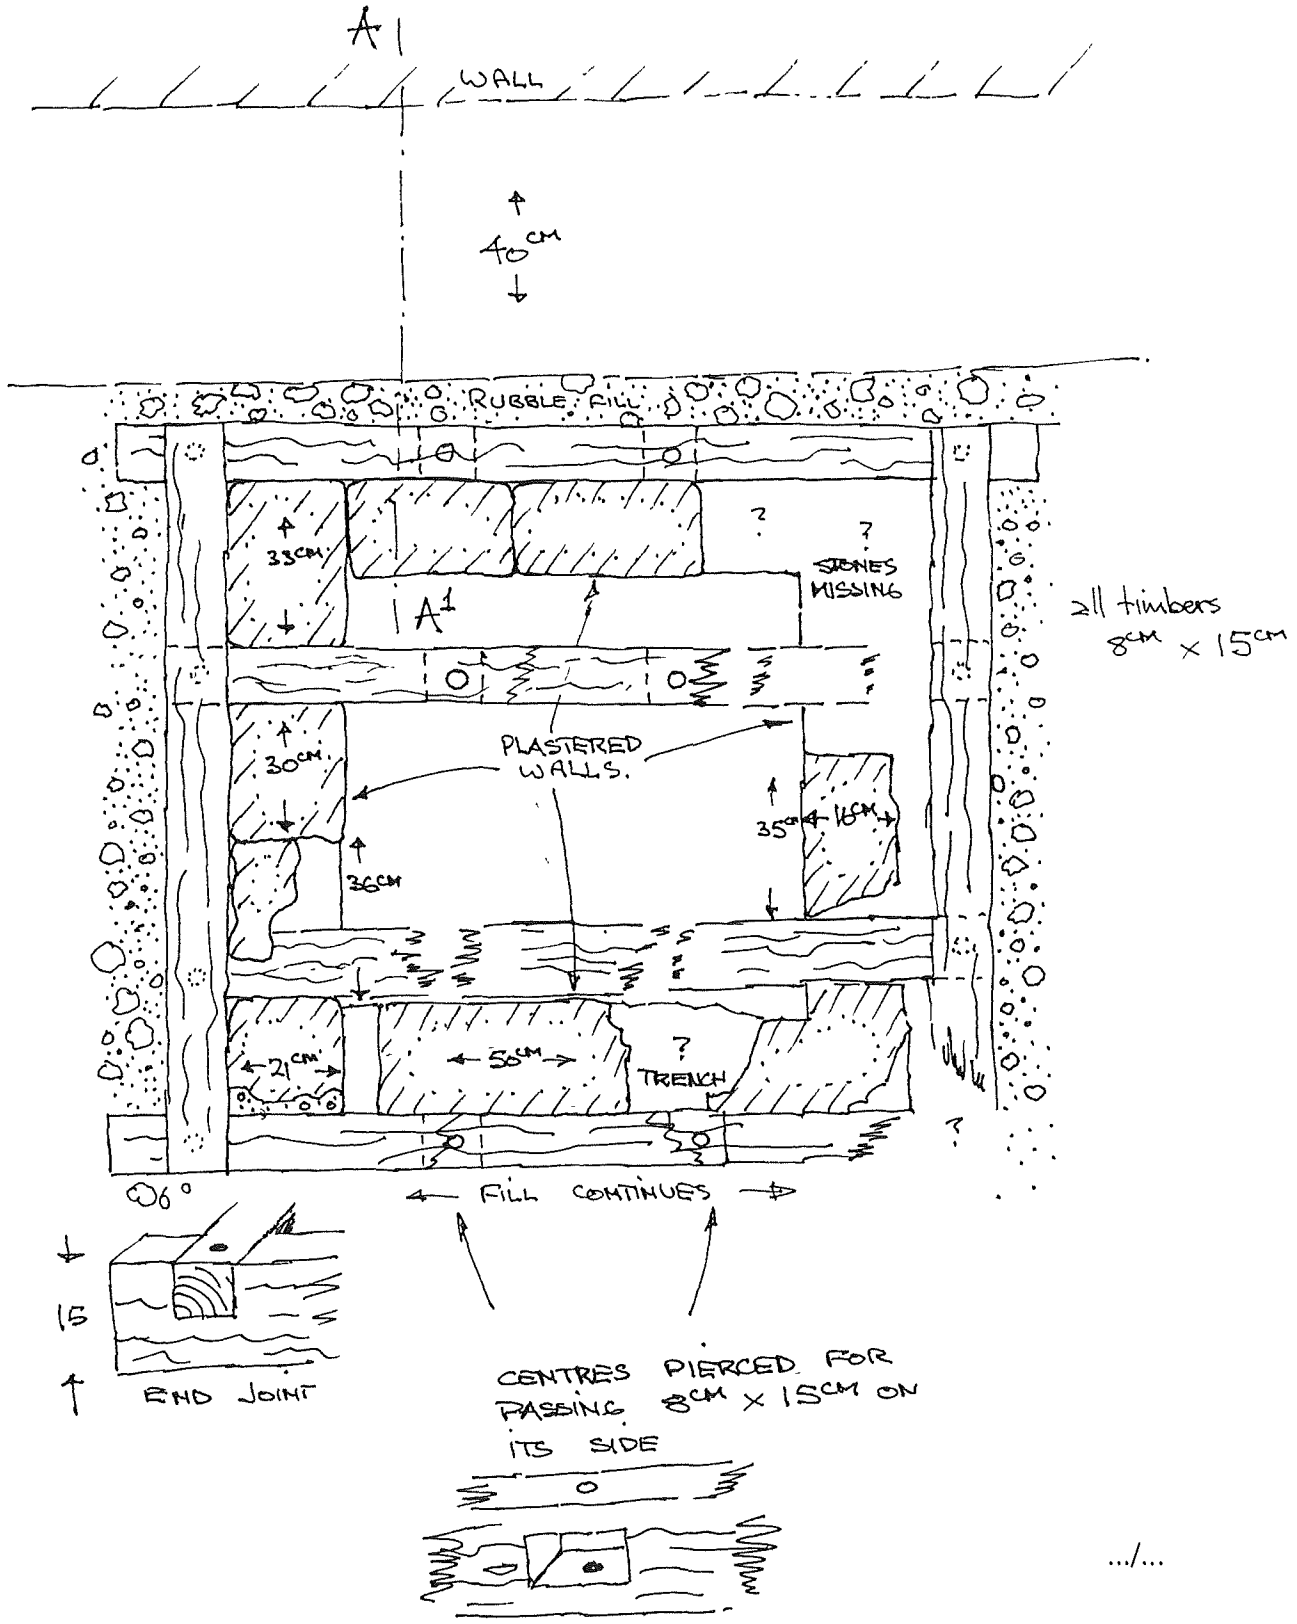 A
WALL
40 CM
RUBBLE FILL
33 CM
?
?
STONES
MISSING
A1
all timbers
8 CM x 15 CM
30 CM
PLASTERED
WALLS.
35 CM
16 CM
36 CM
21 CM
50 CM
?
TRENCH
?
FILL CONTINUES
15
END JOINT
CENTRES PIERCED FOR
PASSING 8 CM x 15 CM ON
ITS SIDE
.../...